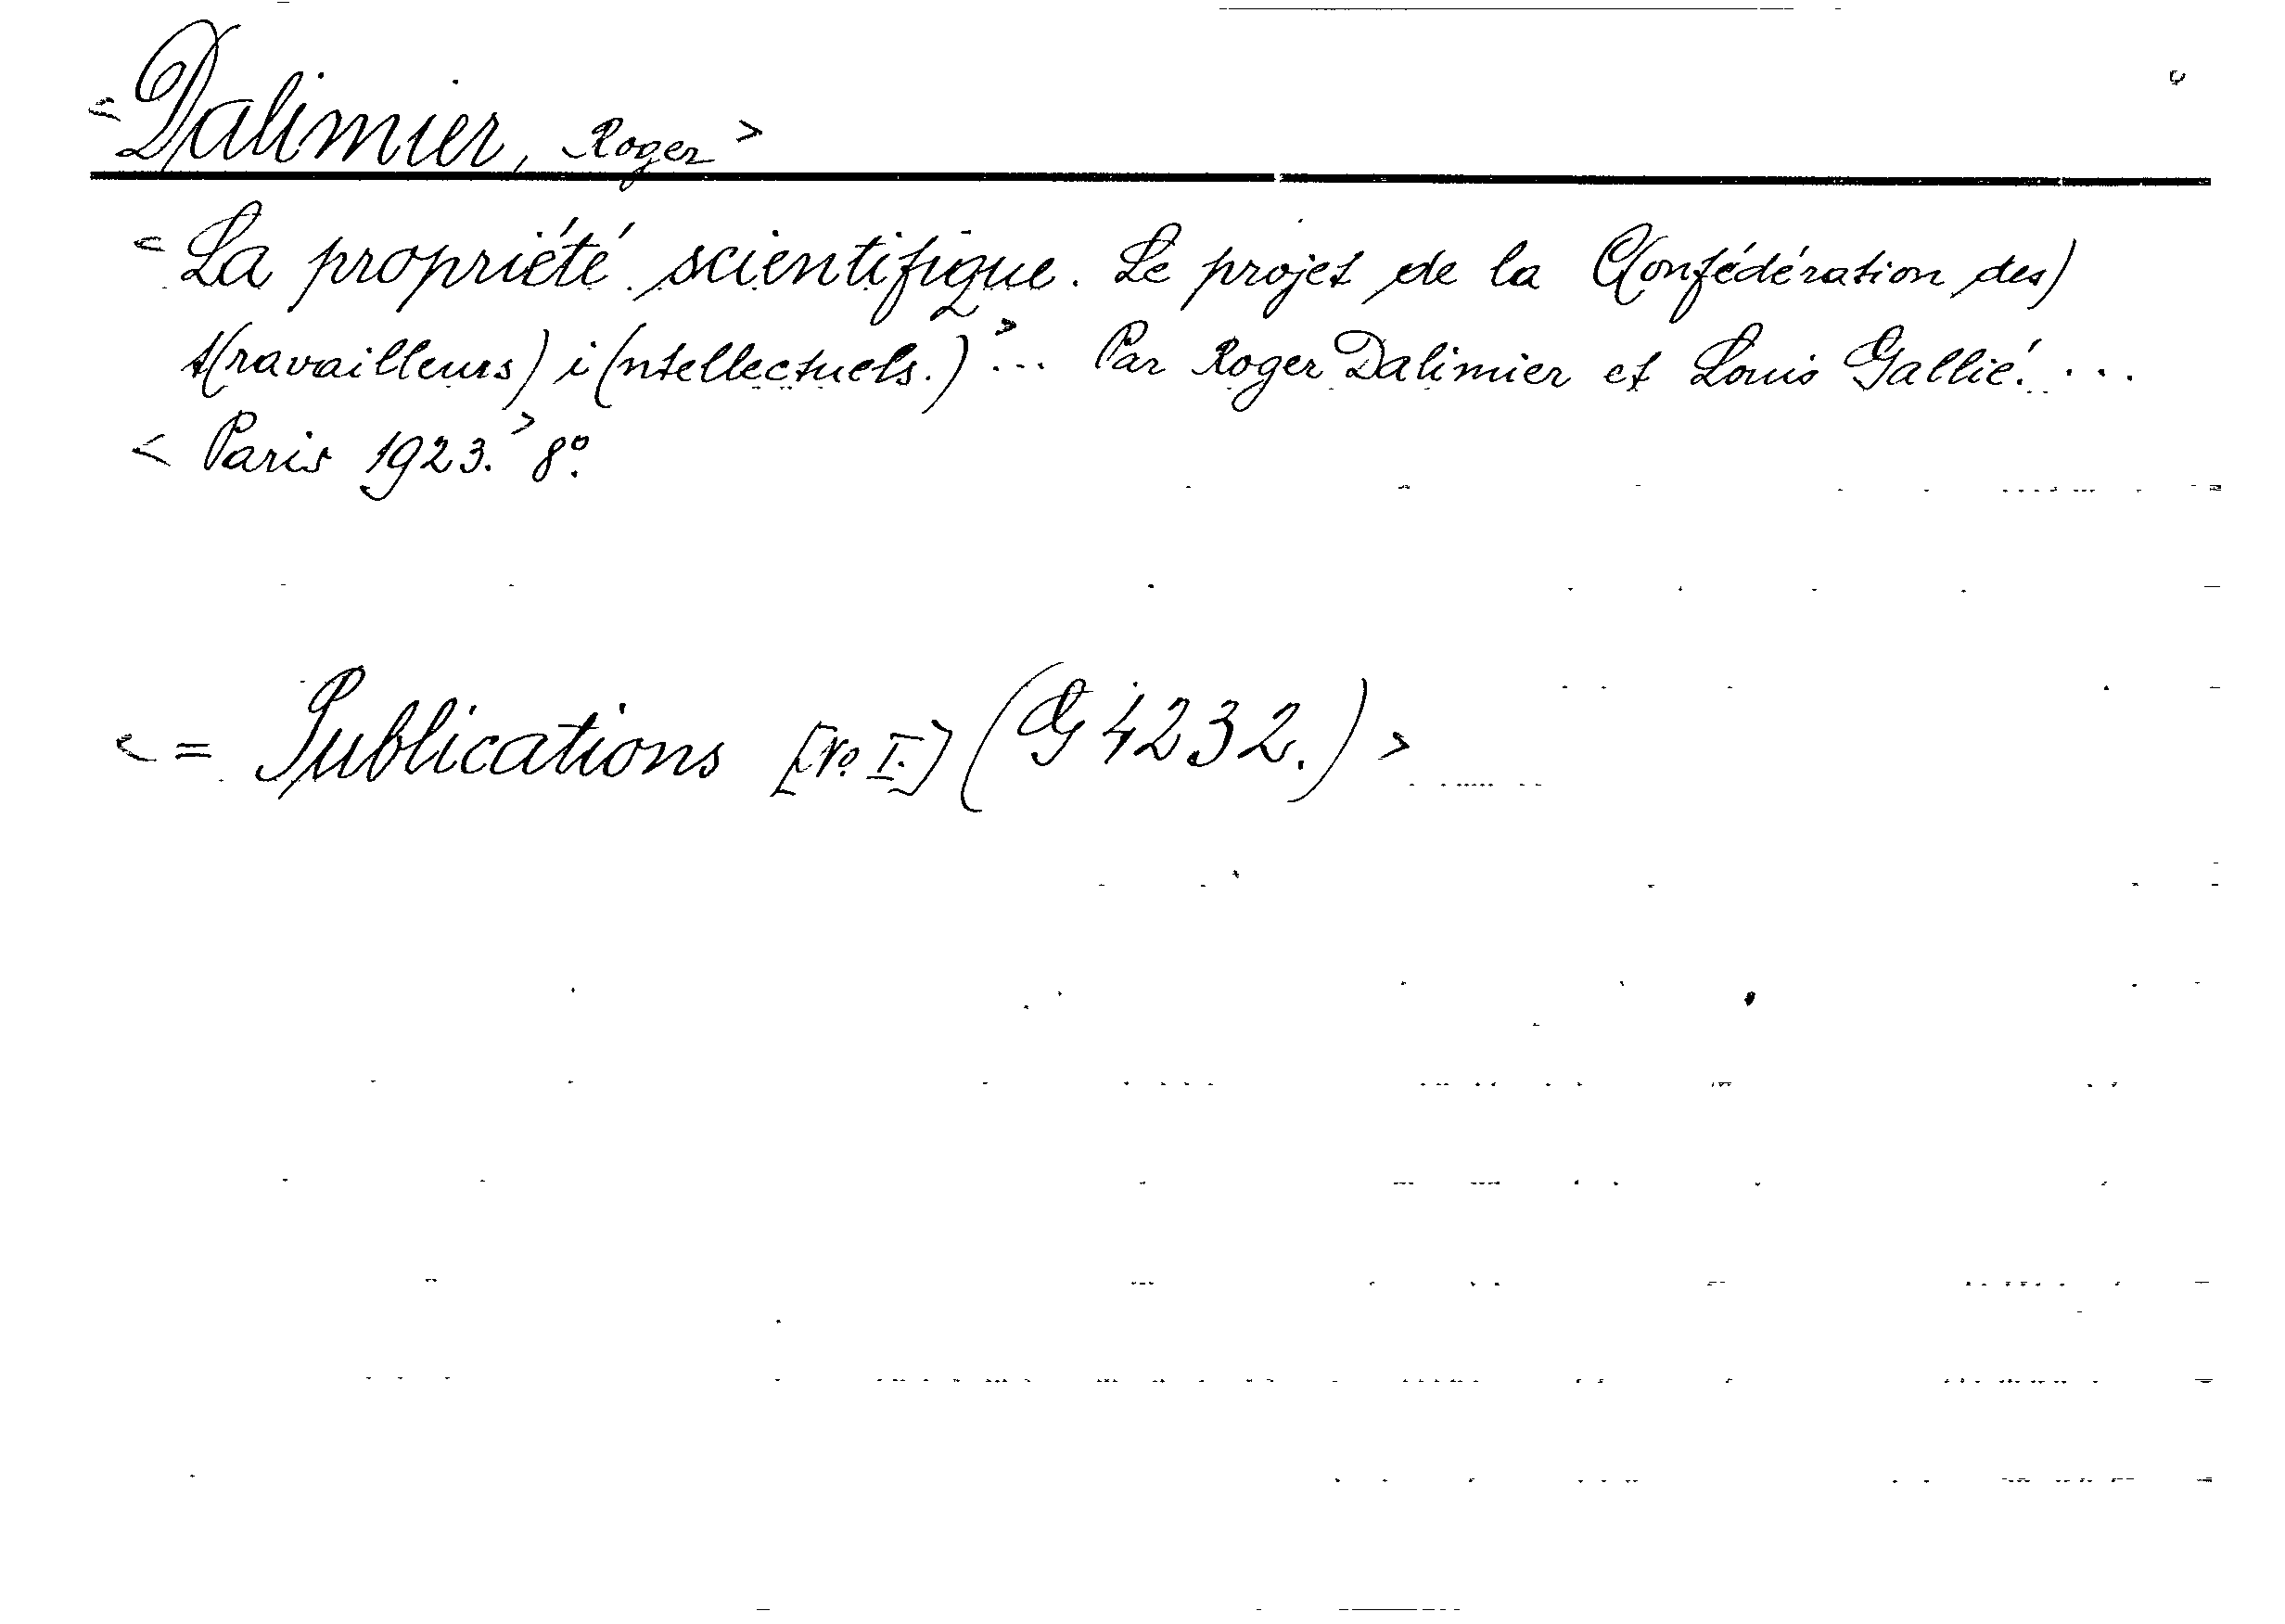 <Dalimier, Roger>
<La propriété scientifique. Le projet de la C(onfédération des)
t(ravailleurs) i(ntellectuels.)>... Par Roger Dalimier et Louis Gallié. ...
<Paris 1923.> 8º.
<= Publications [No I.] (G 4232.)>